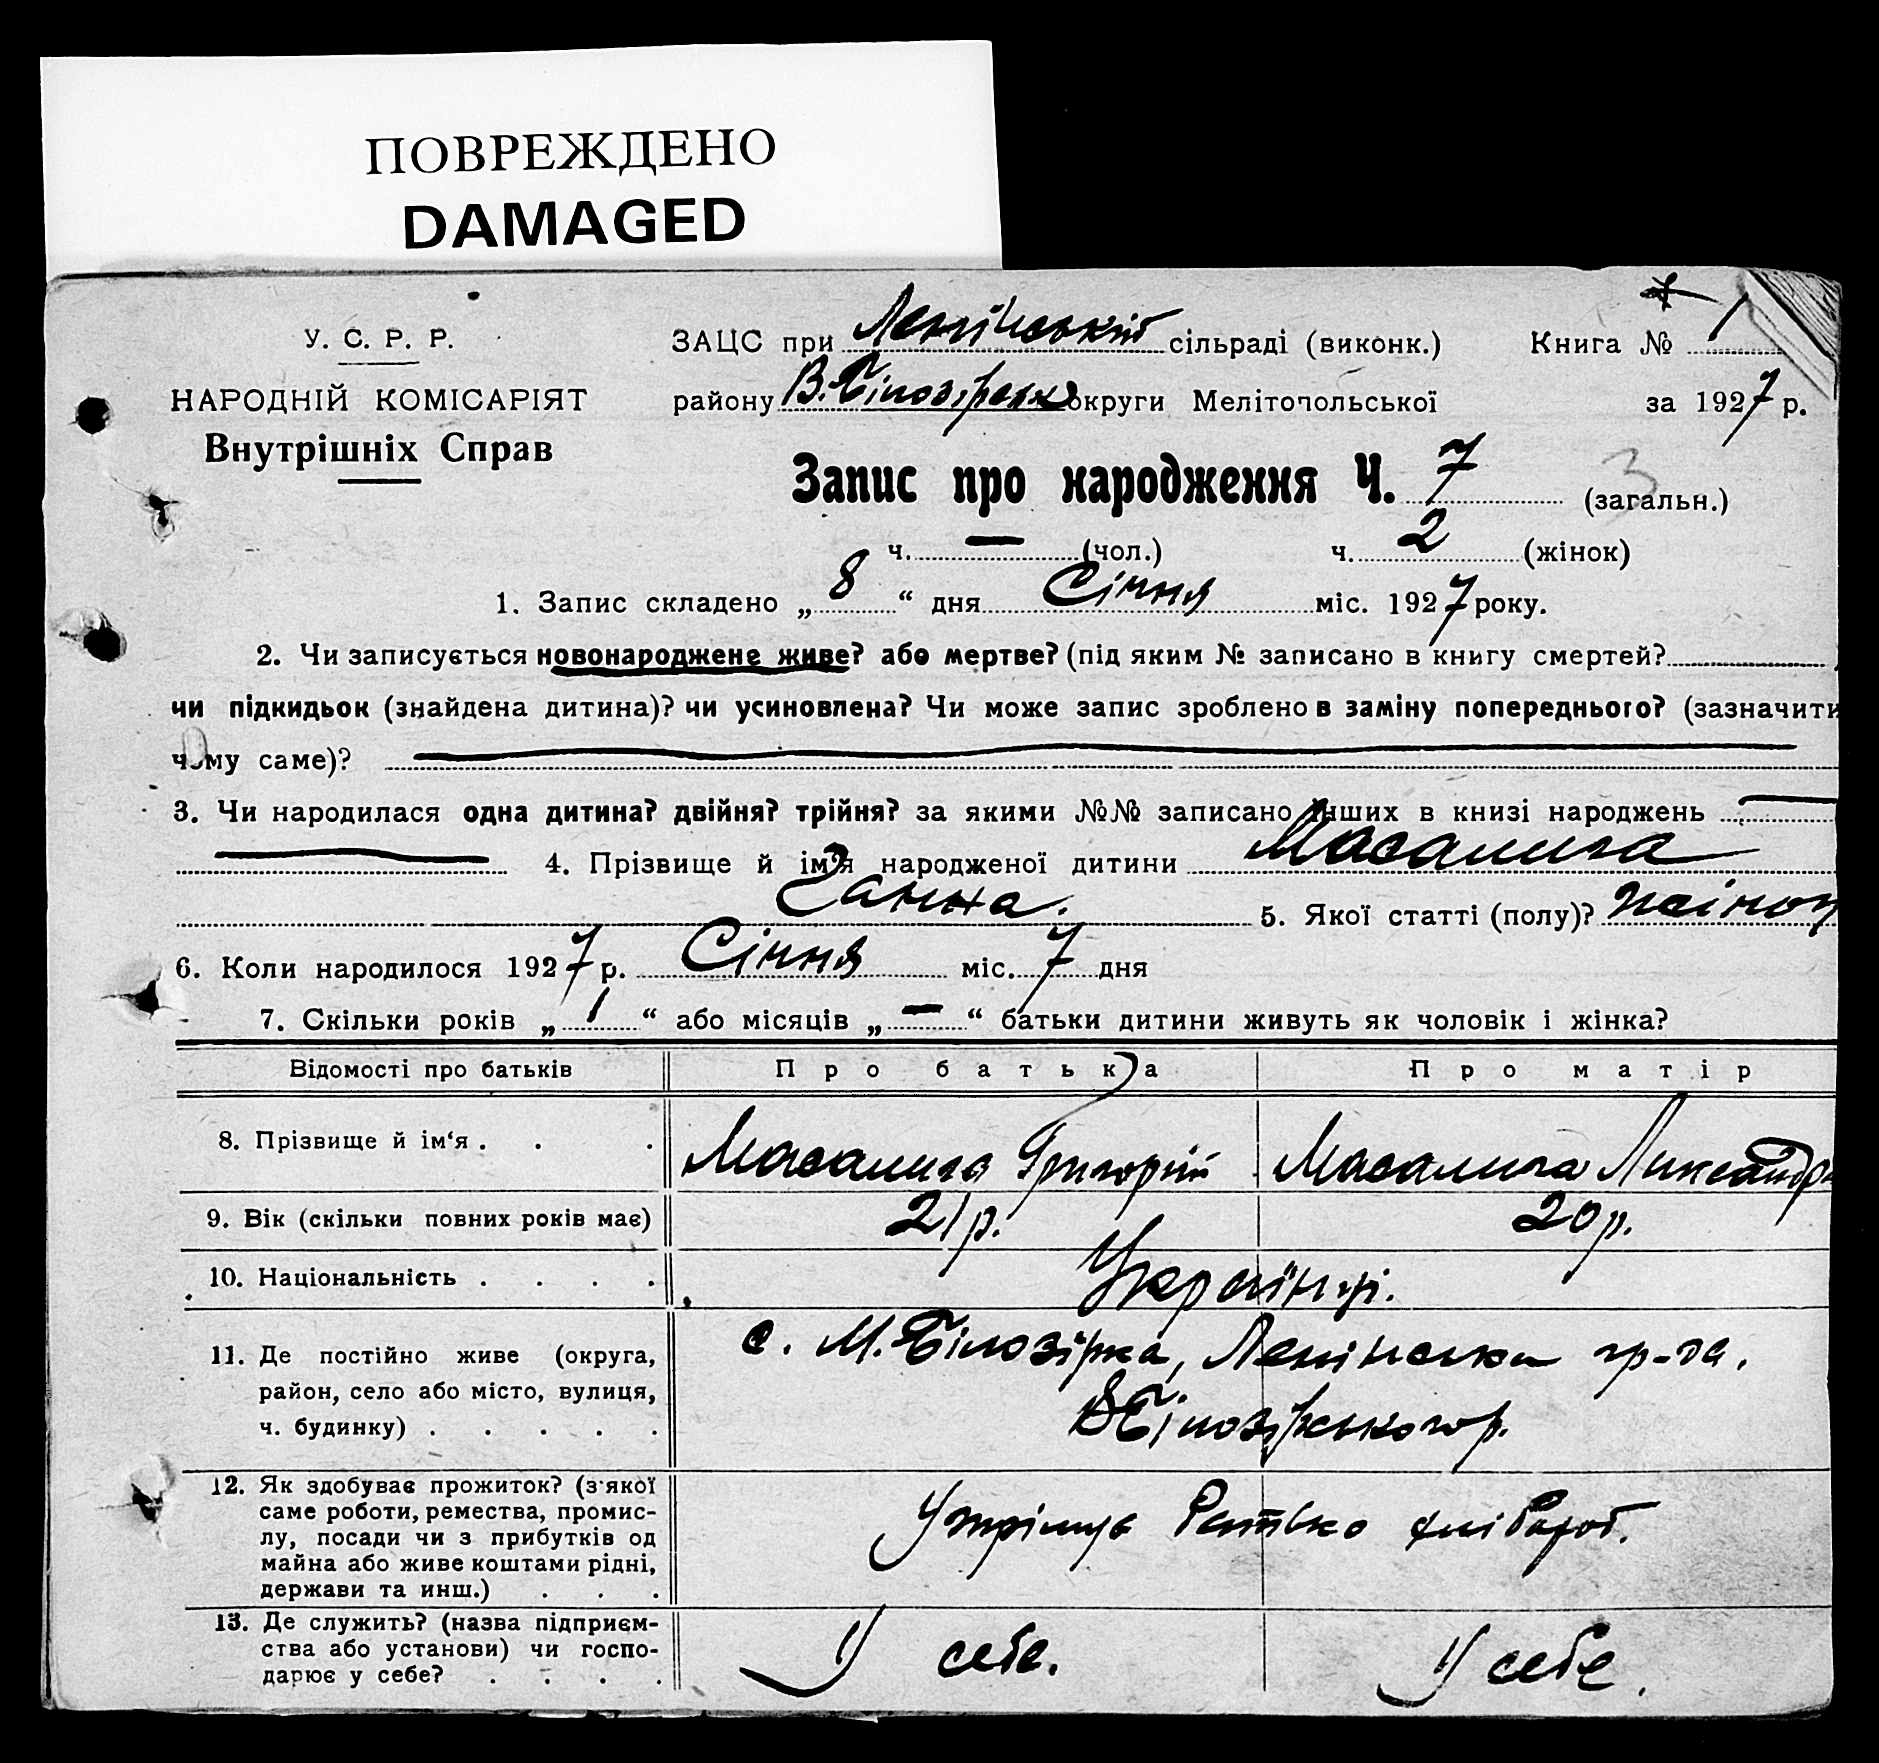 ПОВРЕЖДЕНО
DAMAGED
У. С. Р. Р.
НАРОДНІЙ КОМІСАРІЯТ
Внутрішніх Справ
ЗАЦС при Ленінській сільраді (виконк.) Книга № 1
району В.Білозірськ округи Мелітопольської за 1927 р.
Запис про народження Ч. 7 (загальн.) 3
ч. — (чол.) ч. 2 (жінок)
1. Запис складено „ 8 “ дня Січня міс. 1927 року.
2. Чи записується новонароджене живе? або мертве? (під яким № записано в книгу смертей?
чи підкидьок (знайдена дитина)? чи усиновлена? Чи може запис зроблено в заміну попереднього? (зазначити
чому саме)?
3. Чи народилася одна дитина? двійня? трійня? за якими №№ записано інших в книзі народжень
4. Прізвище й ім'я народженої дитини Масалига
Ганна. 5. Якої статті (полу)? жіноч
6. Коли народилося 1927 р. Січня міс. 7 дня
7. Скільки років „ 1 “ або місяців „ — “ батьки дитини живуть як чоловік і жінка?
Відомості про батьків Про батька Про матір
8. Прізвище й ім‘я . . . Масалига Григорій Масалига Ликсандр
9. Вік (скільки повних років має) 21 р. 20 р.
10. Національність . . . . Українці.
11. Де постійно живе (округа,
район, село або місто, вулиця,
ч. будинку) . . . . .
с. М. Білозірка, Ленінська
Білозірського р.
12. Як здобуває прожиток? (з'якої
саме роботи, ремества, промис-
лу, посади чи з прибутків од
майна або живе коштами рідні,
держави та инш.) . . .
Утрімує Батько хлібороб.
13. Де служить? (назва підприєм-
ства або установи) чи госпо-
дарює у себе? . . . .
У себе. У себе.